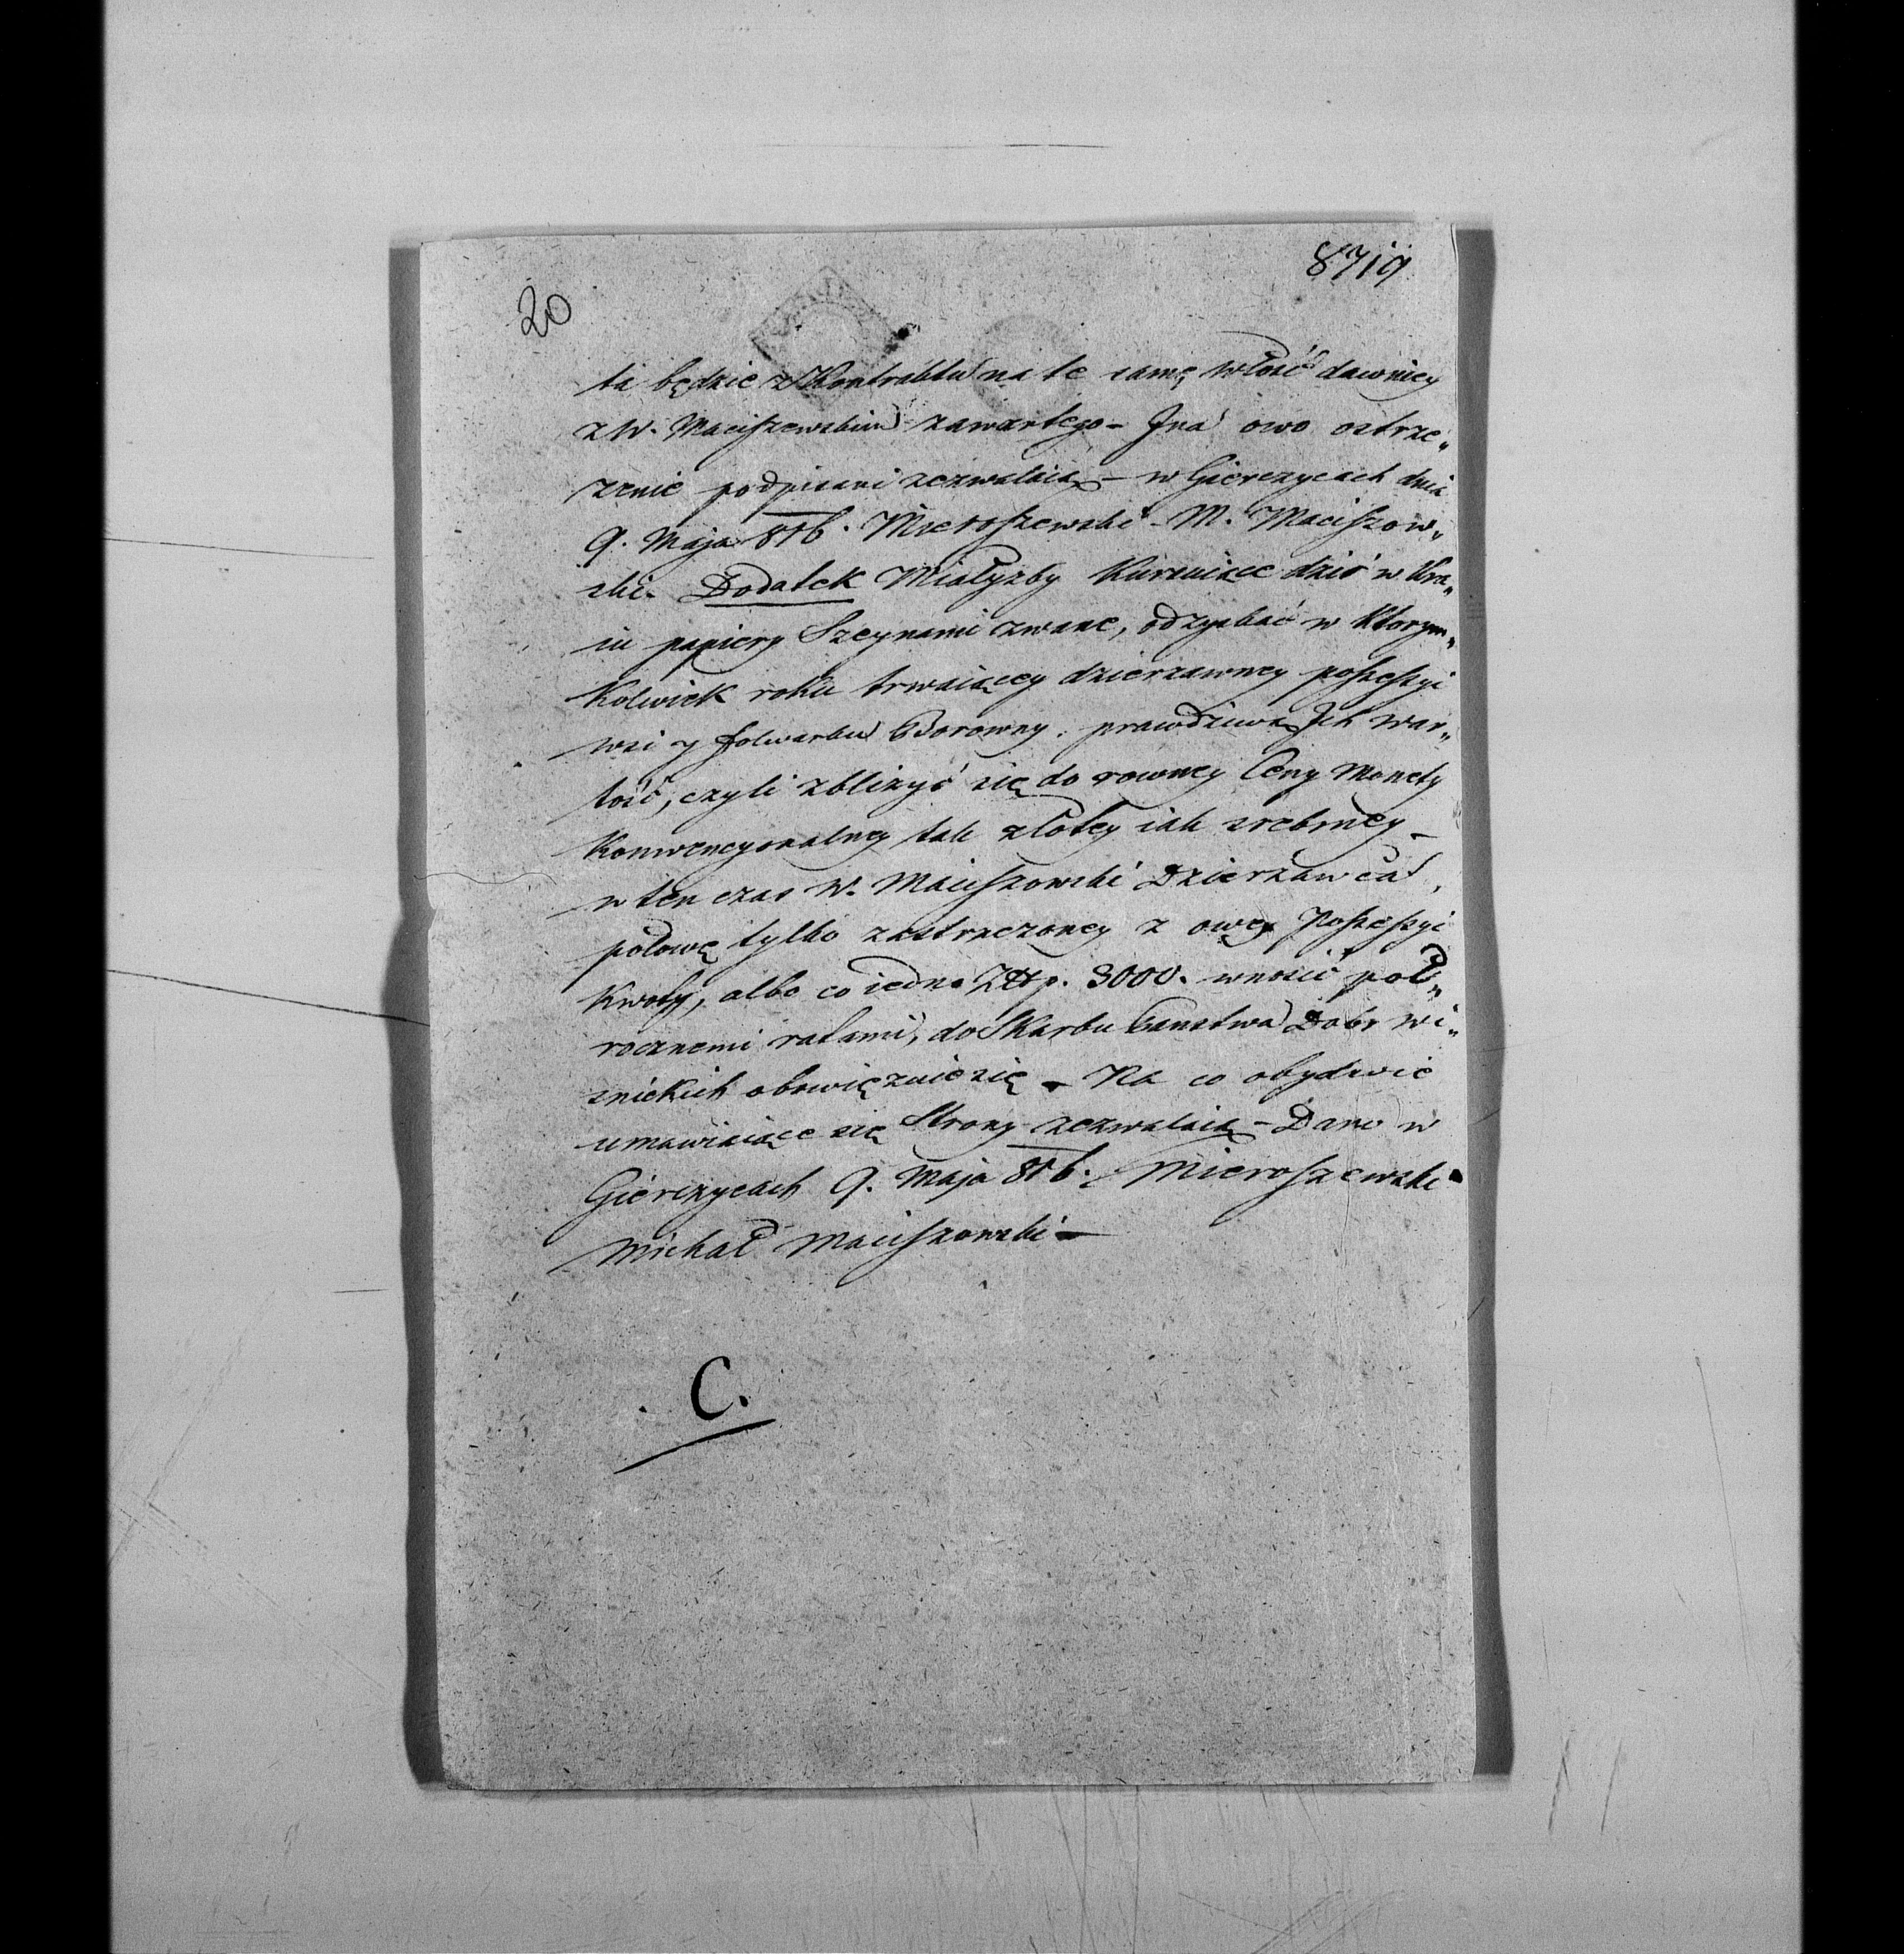 8719
20
ta będzie z Kontraktu na te samę włość dawniey
z W. Maciszewskim zawartego – Jna owo ostrze„
żenie podpisani zezwalaią – w Gierczycach dnia
9. Maja 816. Mieroszewski – M. Maciszow„
ski. Dodatek Miałyżby kursuiące dziś w Kra„
iu papiery Szeynami zwane, odzyskać w ktorym„
kolwiek roku trwaiącey dzierzawney possessyi
wsi y folwarku Borowny, prawdziwą Jch war„
tość, czyli zbliżyć się do rowney Ceny Monety
Konwencyonalney tak złotey iak srebrney –
w ten czas W. Maciszowski Dzierżawca,
połowę tylko zastrzeżoney z owey Possessyi
kwoty, albo co iedno Złp. 3000. wnosić poł„
rocznemi ratami, do Skarbu Państwa Dobr Wi„
śnickich obowięzuie się – Na co obydwie
umawiaiące się Strony zezwalaią – Dano w
Gierczycach 9. Maja 816. Mieroszewski
Michał Maciszowski –
C.